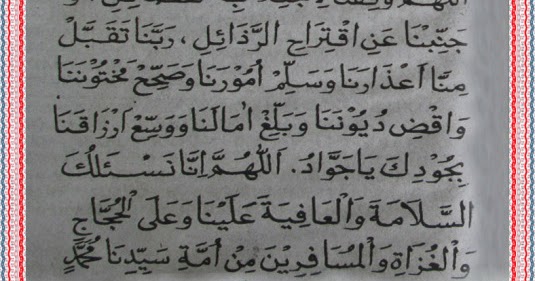 جَنِّبْنَا عَنِ اقْتِرَاحِ الرَّذَائِلِ، رَبَّنَا تَقَبَّلْ
مِنَّا أَعْذَارَنَا وَسَلِّمْ أُمُوْرَنَا وَصَحِّحْ مَخْتُوْنَنَا
وَاقْضِ دُيُوْنَنَا وَبَلِّغْ اٰمَالَنَا وَوَسِّعْ اَرْزَاقَنَا
بِجُوْدِكَ يَاجَوَّادُ. اَللّٰهُمَّ اِنَّا نَسْئَلُكَ
السَّلَامَةَ وَالْعَافِيَةَ عَلَيْنَا وَعَلَى الْحُجَّاجِ
وَالْغُزَاةِ وَالْمُسَافِرِيْنَ مِنْ اُمَّةِ سَيِّدِنَا مُحَمَّدٍ